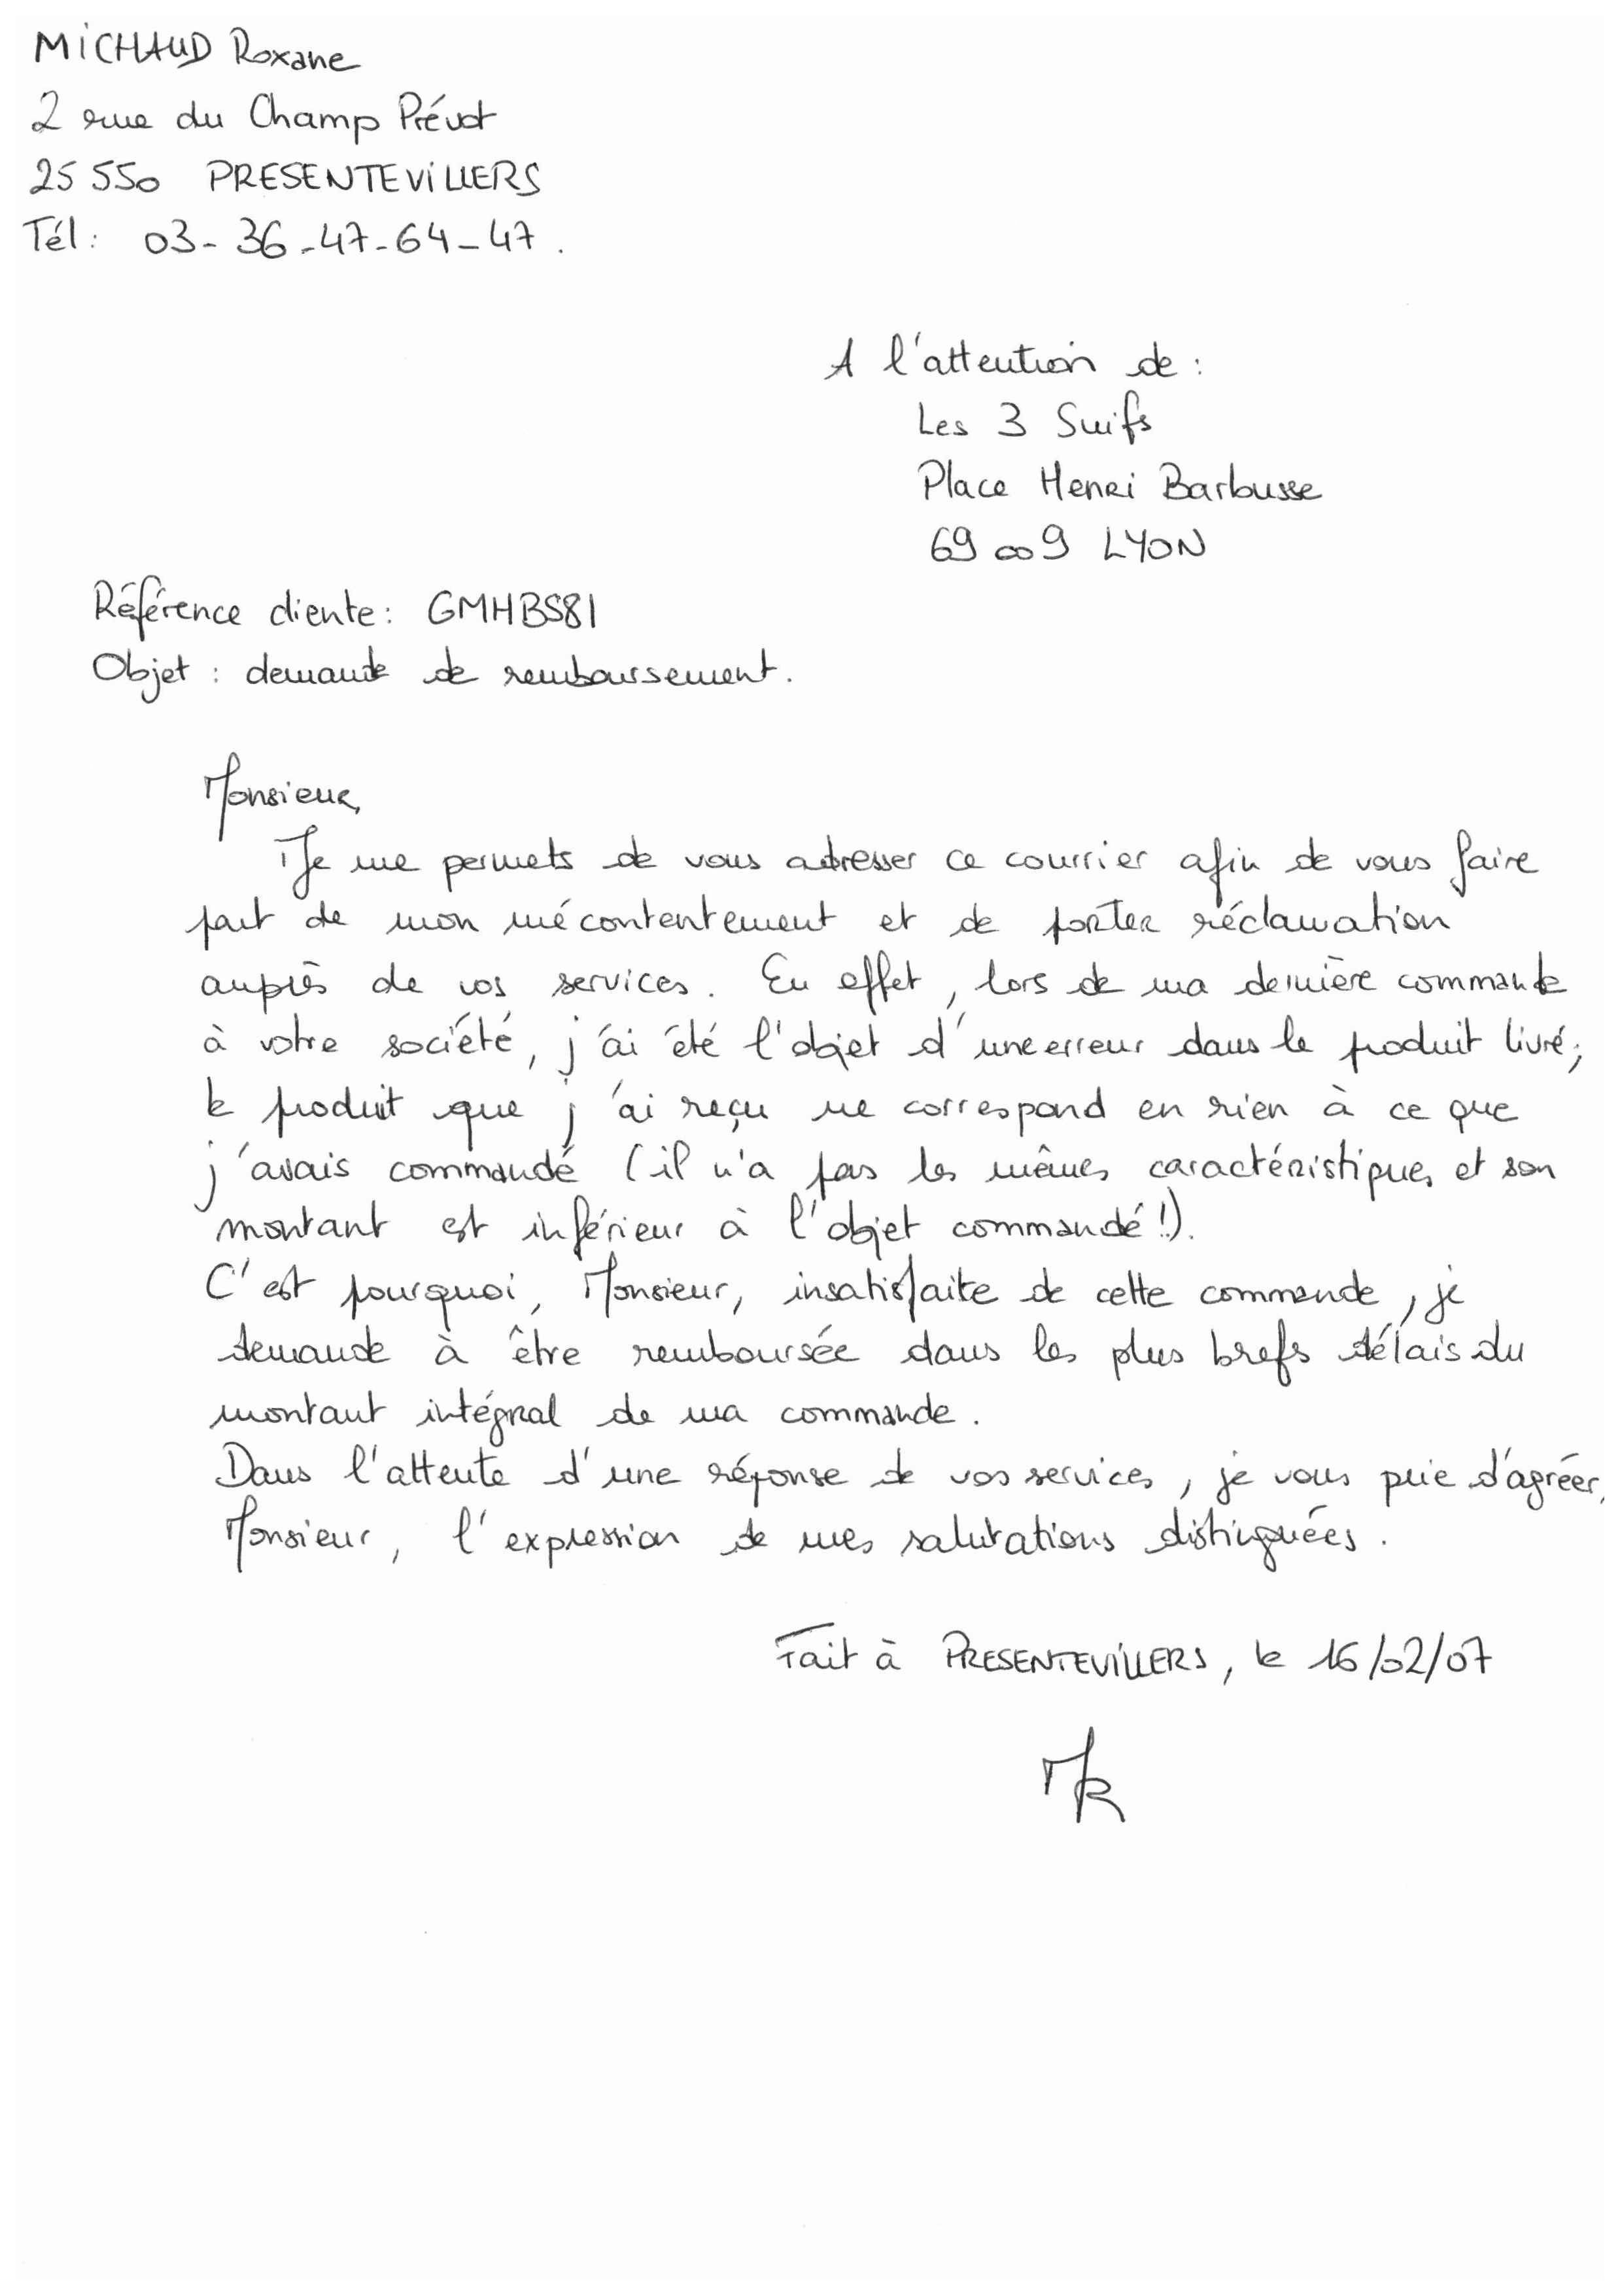 MICHAUD Roxane
2 rue du Champ Prévot
25 550 PRESENTEVILLERS
Tél : 03-36-47-64-47.
A l'attention de :
Les 3 Suifs
Place Henri Barbusse
69 009 LYON
Référence cliente : GMHBS81
Objet : demande de remboursement.
Monsieur,
Je me permets de vous adresser ce courrier afin de vous faire
part de mon mécontentement et de porter réclamation
auprès de vos services. En effet, lors de ma dernière commande
à votre société, j'ai été l'objet d'une erreur dans le produit livré;
le produit que j'ai reçu ne correspond en rien à ce que
j'avais commandé (il n'a pas les mêmes caractéristiques et son
montant est inférieur à l'objet commandé !!).
C'est pourquoi, Monsieur, insatisfaite de cette commande, je
demande à être remboursée dans les plus brefs délais du
montant intégral de ma commande.
Dans l'attente d'une réponse de vos services, je vous prie d'agréer,
Monsieur, l'expression de mes salutations distinguées.
Fait à PRESENTEVILLERS, le 16/02/07
MR